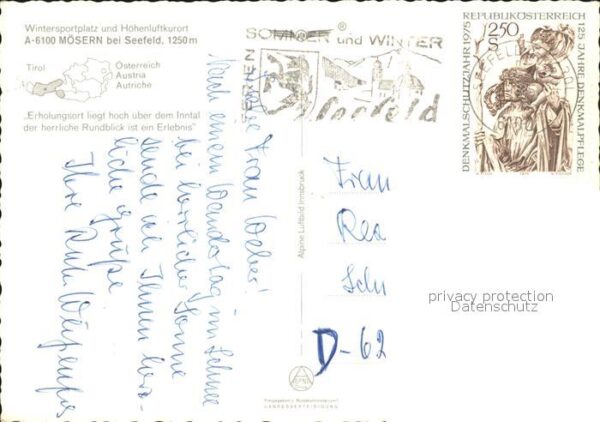 Wintersportplatz und Höhenluftkurort
A-6100 MÖSERN bei Seefeld, 1250 m
Tirol
Österreich
Austria
Autriche
"Erholungsort liegt hoch über dem Inntal
der herrliche Rundblick ist ein Erlebnis"
FERIEN
SOMMER und WINTER
Seefeld
REPUBLIK ÖSTERREICH
2.50
S
DENKMALSCHUTZJAHR 1975
125 JAHRE DENKMALPFLEGE
SEEFELD TIROL
Liebe Frau Weber!
Nach einem Wandertag im Schnee
bei herrlicher Sonne
sende ich Ihnen herz-
liche Grüße
Ihre Ruth
Alpine Luftbild Innsbruck
Frau
Rea
Sch
D-62
privacy protection
Datenschutz
ALPINA
Freigegeben v. Bundesministerium f.
LANDESVERTEIDIGUNG